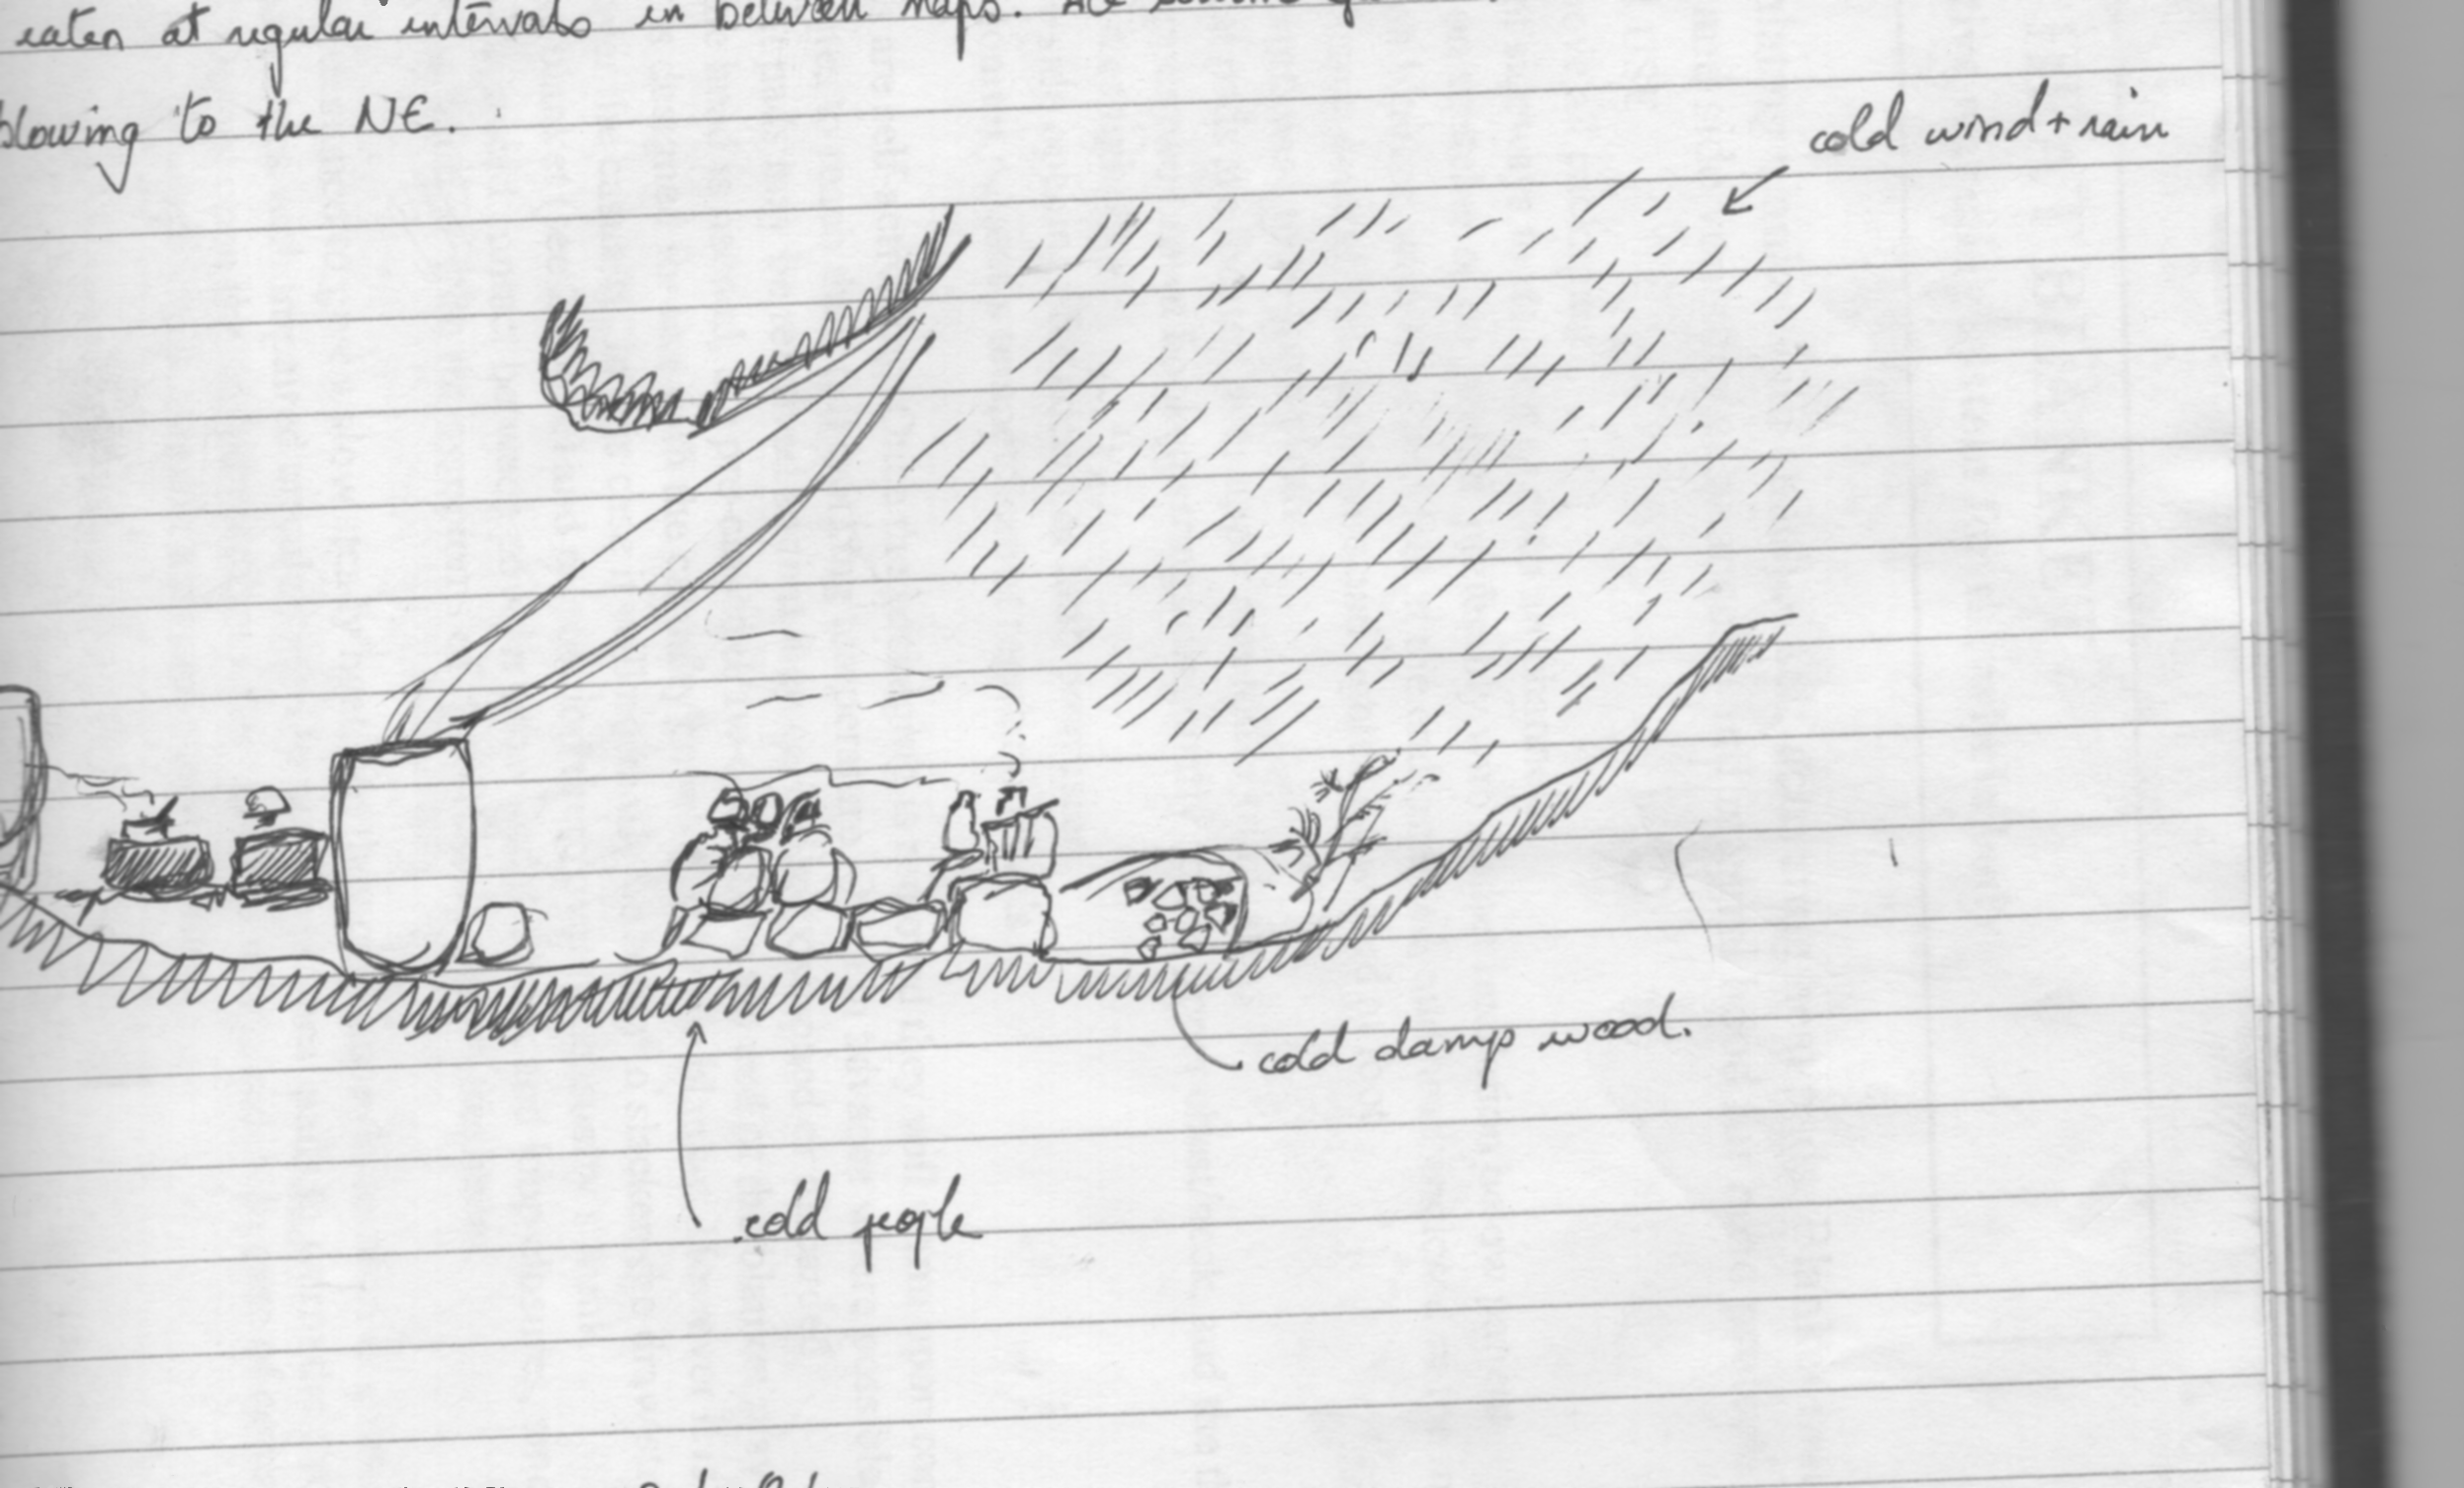 eaten at regular intervals in between naps.
blowing to the NE.
cold wind + rain
cold damp wood.
cold people